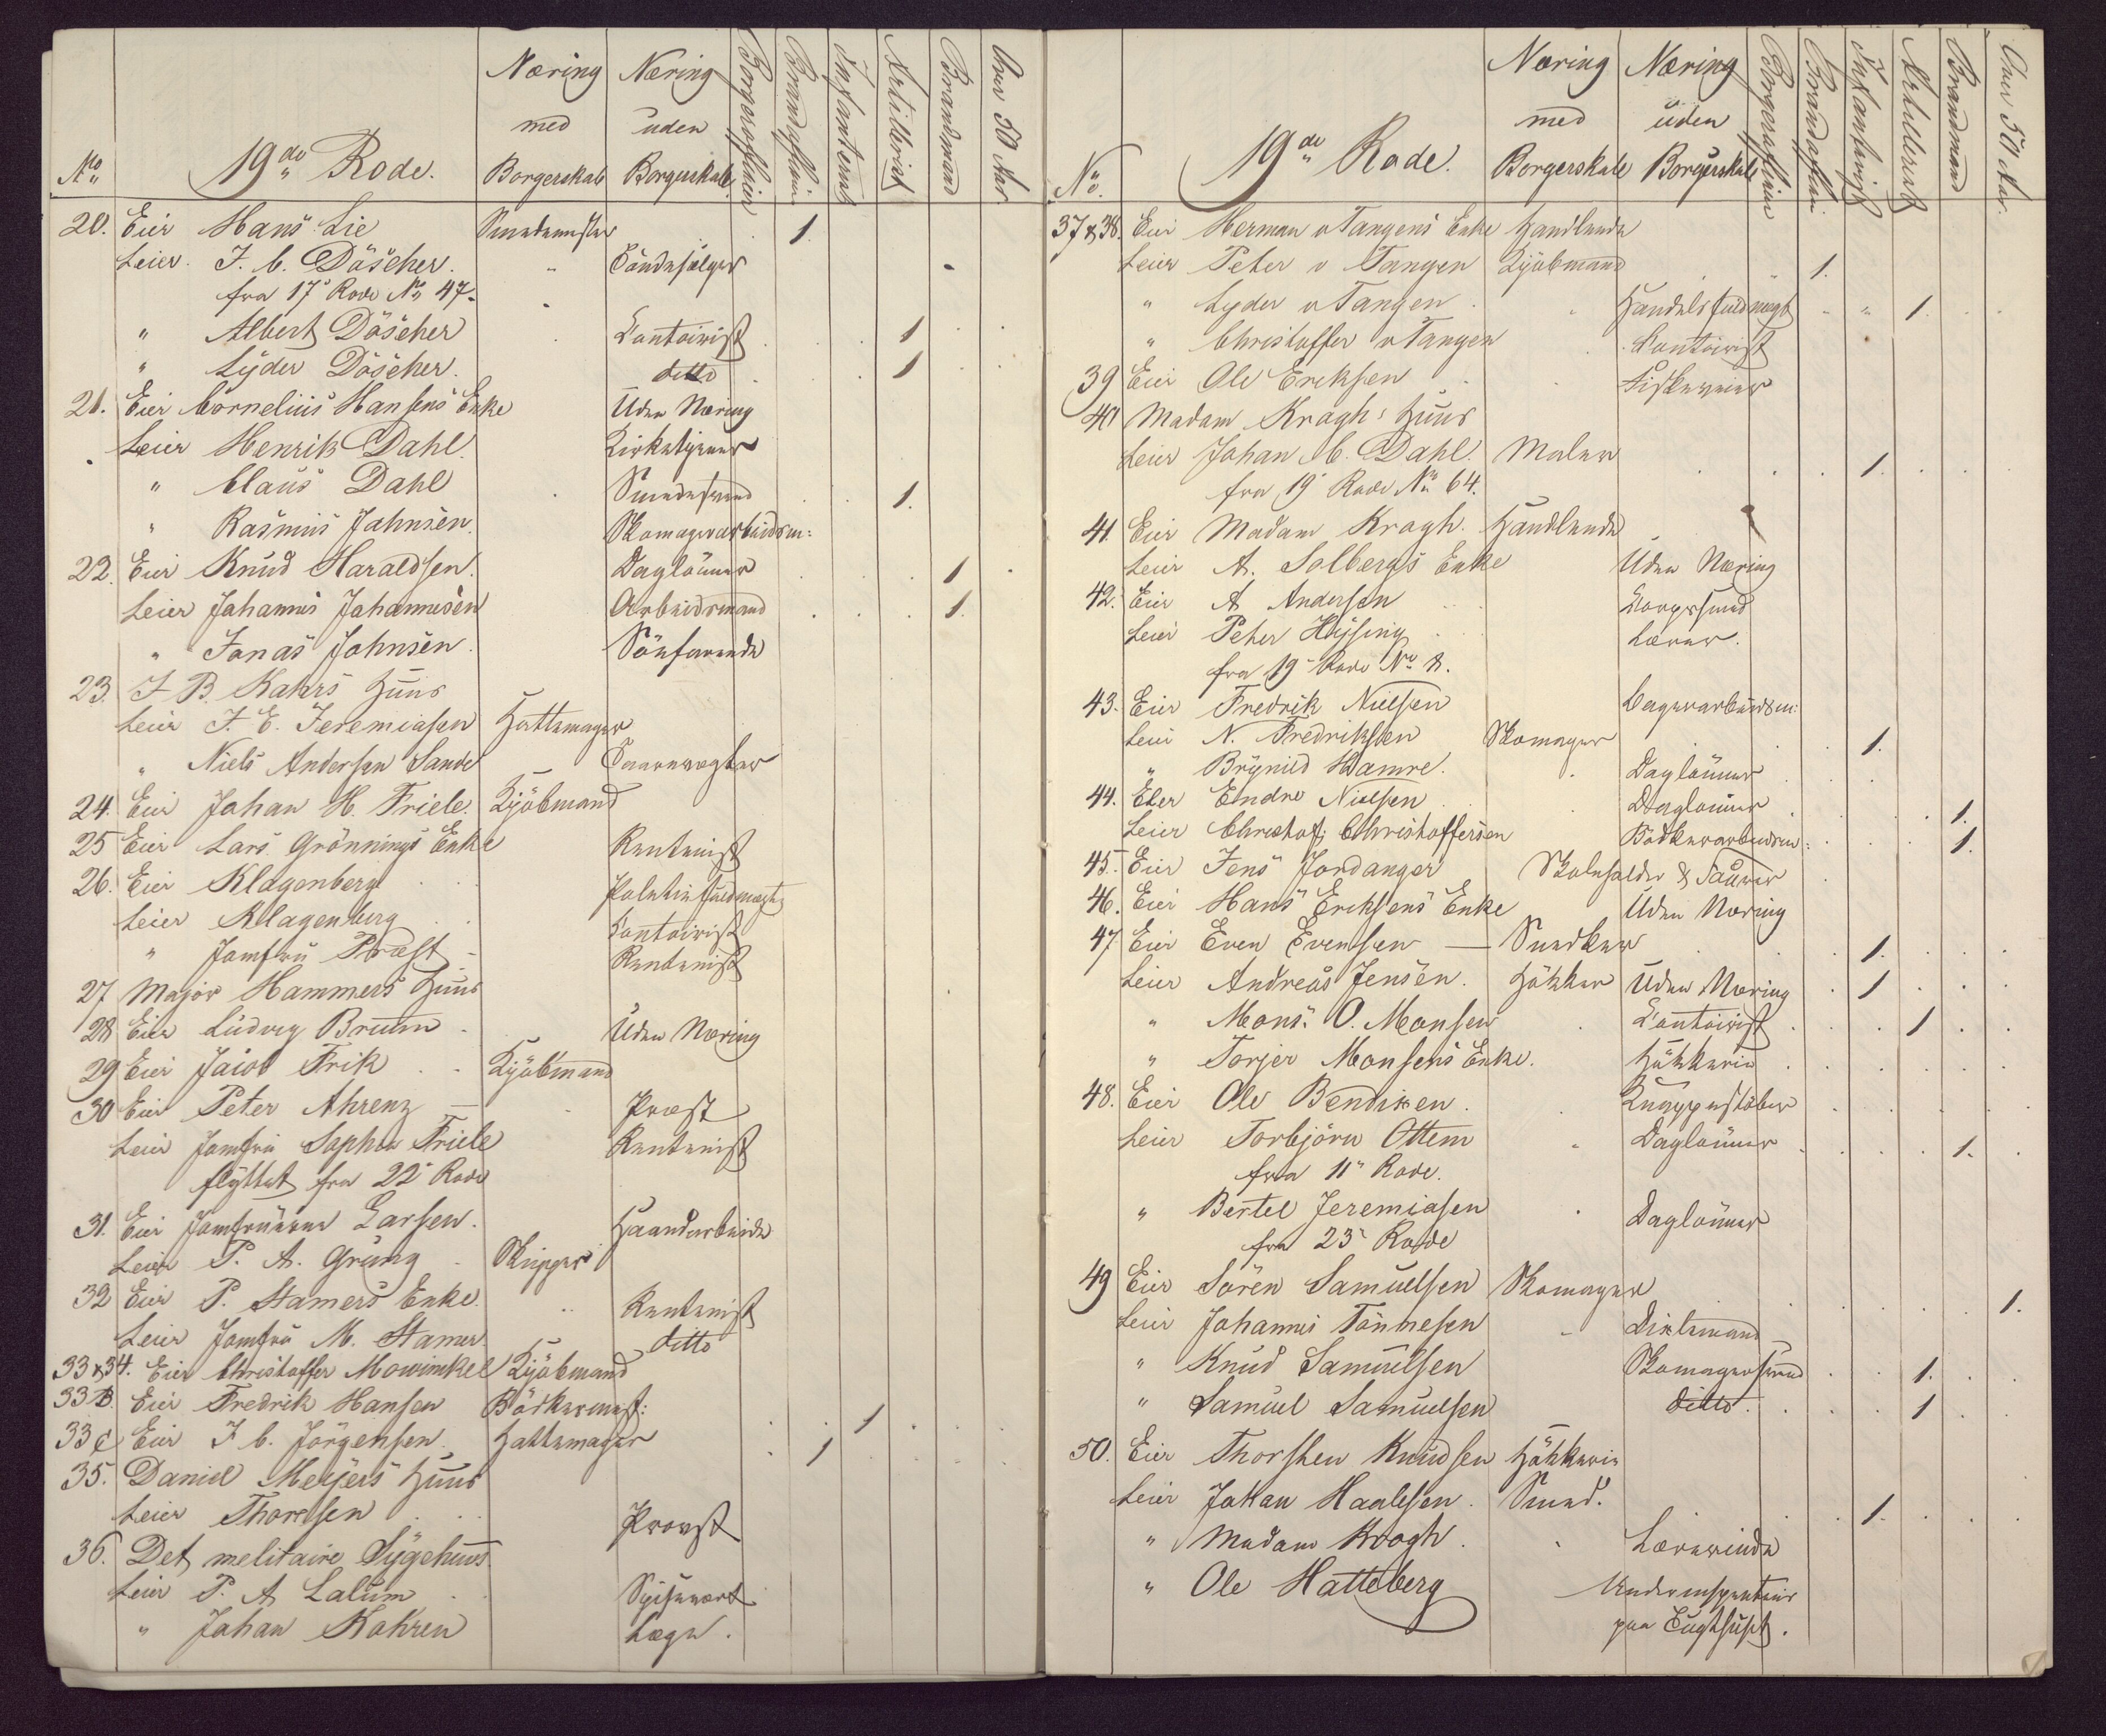 No 19de Rode. Næring med Borgerskab Næring uden Borgerskab Borgerofficier Brandofficier Infanterist Artillerist Brandmand Over 50 Aar
20. Eier Hans Lie Smedemester 1.
Leier J. C. Döscher Töndesælger
fra 17de Rode No 47.
" Albert Döscher Contoirist 1
" Lyder Döscher ditto 1
21. Eier Cornelius Hansens Enke Uden Næring
Leier Henrik Dahl Kirketjener
" Claus Dahl Smedesvend 1.
" Rasmus Johnsen Skomagerarbeidsm:
22. Eier Knud Haraldsen Daglönner 1
Leier Johannes Johannesen Arbeidsmand 1.
" Jonas Johnsen Söefarende
23. J B. Kahrs Huus
Leier J. E. Jeremiasen Hattemager
" Niels Andersen Sande Taarnvægter
24. Eier Johan H. Friele Kjöbmand
25 Eier Lars Grönnings Enke Rentenist
26. Eier Klagenberg Politiefuldmægt:
Leier Klagenberg Contoirist
" Jomfru Præst Rentenist
27 Major Hammers Huus
28 Eier Ludvig Bruun Uden Næring
29 Eier Jacob Frik Kjöbmand
30 Eier Peter Ahrenz Præst
Leier Jomfru Sophie Friele Rentenist
flyttet fra 22 Rode
31. Eier Jomfruerne Larsen Haandarbeide
Leier P. A. Grung Skipper
32 Eier P. Stamers Enke Rentenist
Leier Jomfru M. Stamer ditto
33 & 34. Eier Christoffer Mowinckel Kjöbmand
33 B. Eier Fredrik Hansen Bödkermest: 1
33 C Eier J C. Jörgensen Hattemager 1
35. Daniel Meyers Huus
Leier Thoresen Provst
36. Det melitaire Sygehuus
Leier P. A Lalum Spisevært
" Johan Kahren Læge.
No. 19de Rode. Næring med Borgerskab Næring uden Borgerskab Borgerofficier Brandofficier Infanterist Artillerist Brandmand Over 50 Aar.
37 & 38. Eier Herman v Tangens Enke Handlende
Leier Peter v Tangen Kjöbmand 1.
" Lyder v Tangen Handelsfuldmægt 1.
" Christoffer v Tangen Contoirist
39 Eier Ole Ericksen Fiskeveier
40 Madam Kraghs Huus
Leier Johan C. Dahl. Maler 1.
fra 19 Rode No 64.
41. Eier Madam Kragh. Handlende
Leier A. Solbergs Enke Uden Næring
42. Eier A Andersen
Leier Peter Hysing Lærer.
fra 19 Rode No 8.
43. Eier Fredrik Nielsen Bagerarbeidsm:
Leier N. Fredriksen Skomager 1.
" Brynild Hamre. Daglönner
44. Eier Endre Nielsen Daglönner 1.
Leier Christof: Christoffersen Bödkerarbeidsm: 1.
45. Eier Jens Jordanger Skoleholder &
46. Eier Hans Ericksens Enke Uden Næring
47 Eier Even Evensen — Snedker 1.
Leier Andreas Jensen. Höker Uden Næring 1
" Mons O. Monsen Contoirist 1
" Torjer Monsens Enke. Hökerie
48. Eier Ole Bendixen Knappestöber
Leier Torbjörn Ottem Daglönner 1.
fra 11 Rode.
" Bertel Jeremiasen Daglönner
fra 23 Rode
49 Eier Sören Samuelsen Skomager 1.
Leier Johannes Tönnesen
" Knud Samuelsen Skomagersvend 1.
" Samuel Samuelsen ditto 1
50. Eier Thorsten Knudsen Hökerie
Leier Johan Haalesen. Smed. 1.
" Madam Krogh Lærerinde
" Ole Hatteberg Underinspecteur
paa Tugthuset.